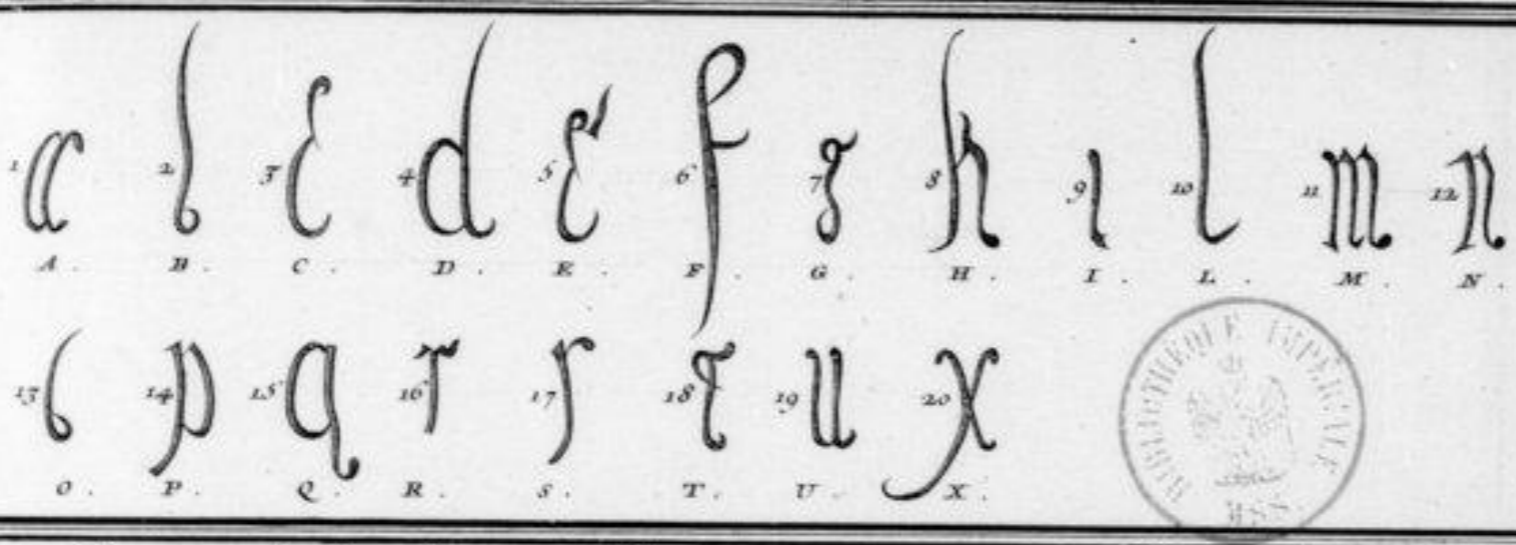 1 a 2 b 3 c 4 d 5 e 6 f 7 g 8 h 9 i 10 l 11 m 12 n
A . B . C . D . E . F . G . H . I . L . M . N .
13 o 14 p 15 q 16 r 17 s 18 t 19 u 20 x
O . P . Q . R . S . T . U . X .
BIBLIOTHEQUE IMPÉRIALE
MSS.